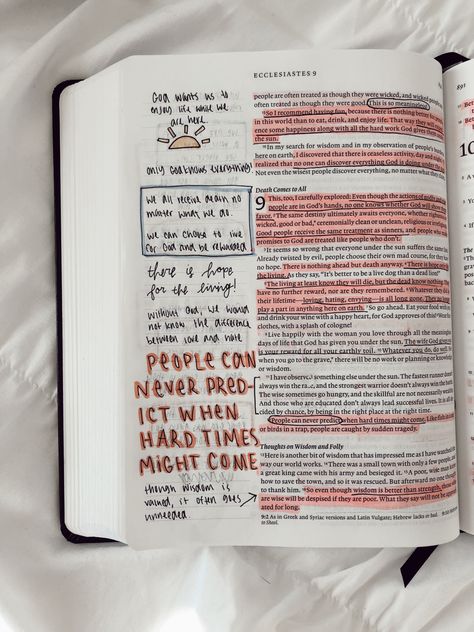 ECCLESIASTES 9
891
God wants us to
enjoy life while we
are here.
only God knows everything!
we all receive death no
matter what we do.
we can choose to live
for God and be rewarded
there is hope
for the living!
without God, we would
not know the difference
between love and hate
PEOPLE CAN
NEVER PRED-
ICT WHEN
HARD TIMES
MIGHT COME
though wisdom is
valued, it often goes
unneeded
people are often treated as though they were wicked, and wicked people
often treated as though they were good. This is so meaningless!
So I recommend having fun, because there is nothing better
in this world than to eat, drink, and enjoy life. That way they will
ence some happiness along with all the hard work God gives them
the sun.
In my search for wisdom and in my observation of people's
here on earth, I discovered that there is ceaseless activity, day and night.
realized that no one can discover everything God is doing under
Not even the wisest people discover everything, no matter what they
Death Comes to All
9 This, too, I carefully explored: Even though the actions of godly and
people are in God's hands, no one knows whether God will show
favor. The same destiny ultimately awaits everyone, whether righteous
wicked, good or bad, ceremonially clean or unclean, religious or
Good people receive the same treatment as sinners, and people who
promises to God are treated like people who don't.
It seems so wrong that everyone under the sun suffers the same
Already twisted by evil, people choose their own mad course, for they
no hope. There is nothing ahead but death anyway. There is hope
the living. As they say, "It's better to be a live dog than a dead lion!"
The living at least know they will die, but the dead know nothing.
have no further reward, nor are they remembered. Whatever they did
their lifetime—loving, hating, envying—is all long gone. They no longer
play a part in anything here on earth. So go ahead. Eat your food with
and drink your wine with a happy heart, for God approves of this!
clothes, with a splash of cologne!
Live happily with the woman you love through all the meaningless
days of life that God has given you under the sun. The wife God gives
is your reward for all your earthly toil. Whatever you do, do well.
when you go to the grave, there will be no work or planning or knowledge
or wisdom.
I have observed something else under the sun. The fastest runner
always win the race, and the strongest warrior doesn't always win the
The wise sometimes go hungry, and the skillful are not necessarily
And those who are educated don't always lead successful lives. It is all
cided by chance, by being in the right place at the right time.
People can never predict when hard times might come. Like fish in
or birds in a trap, people are caught by sudden tragedy.
Thoughts on Wisdom and Folly
Here is another bit of wisdom that has impressed me as I have watched the
way our world works. There was a small town with only a few people,
a great king came with his army and besieged it. A poor, wise man knew
how to save the town, and so it was rescued. But afterward no one thought
to thank him. So even though wisdom is better than strength, those
are wise will be despised if they are poor. What they say will not be appreci-
ated for long.
9:2 As in Greek and Syriac versions and Latin Vulgate; Hebrew lacks or bad.
to Sheol.